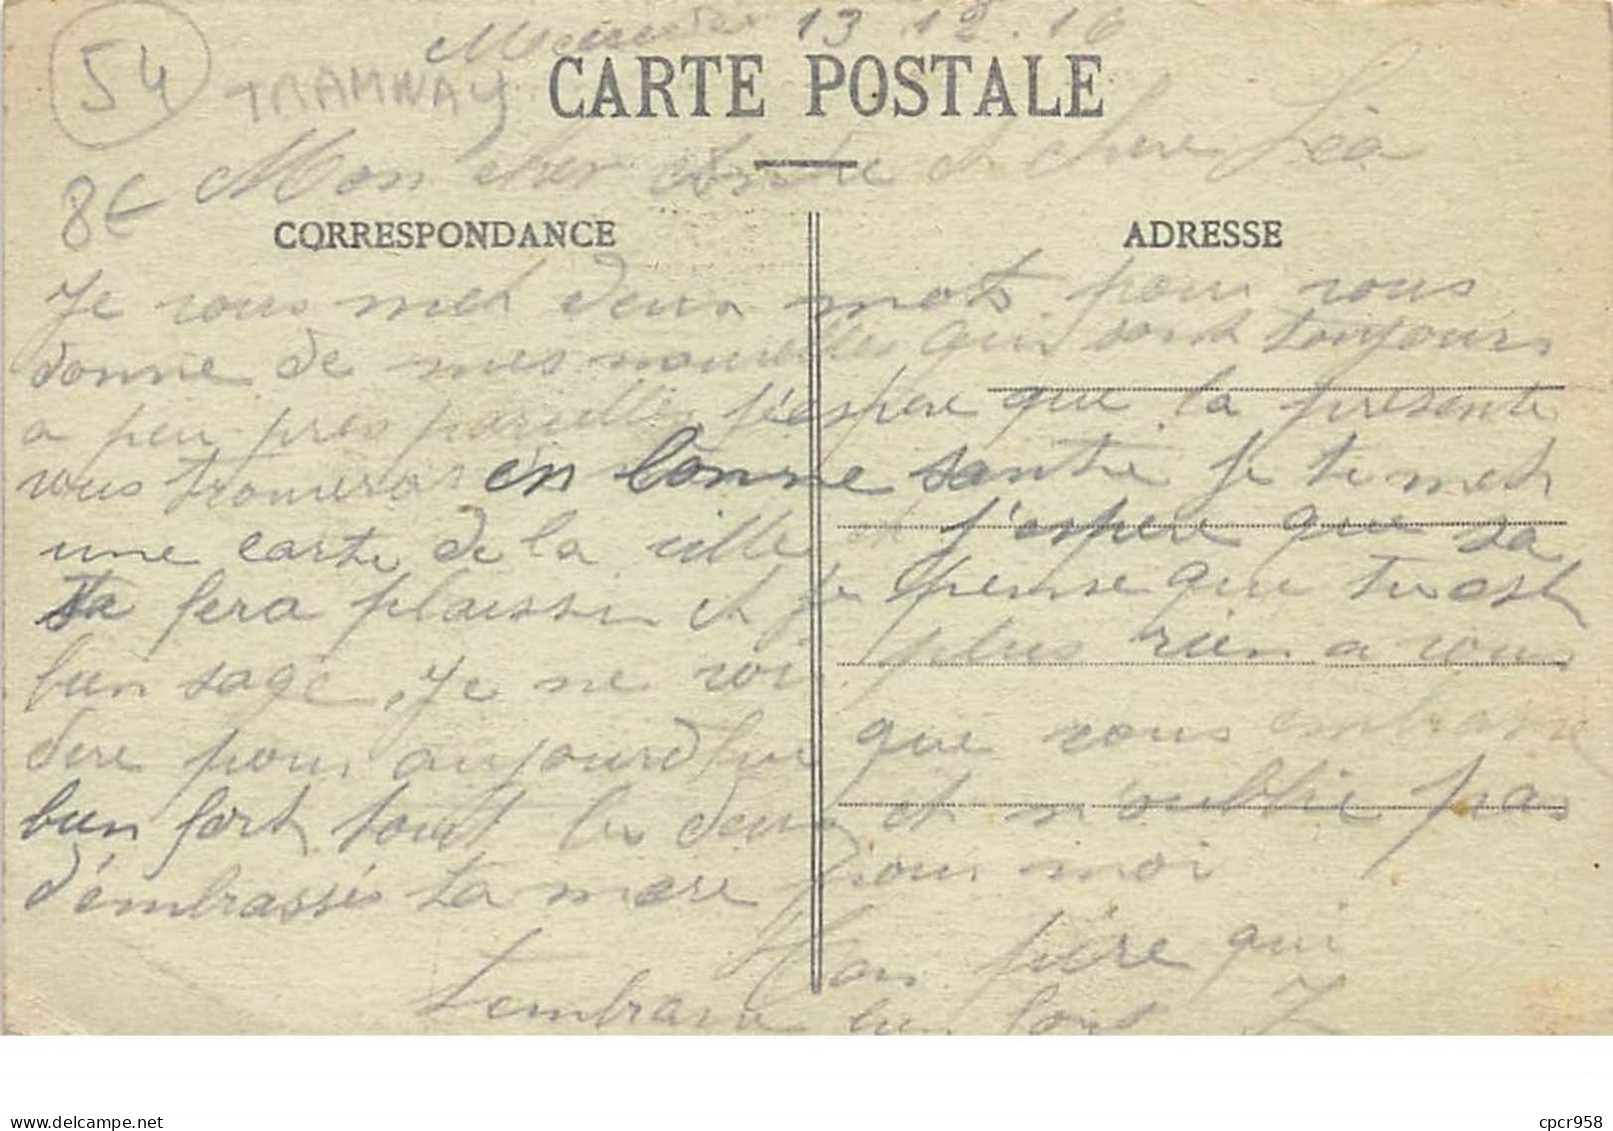 54
TRAMWAY
13.12.16
CARTE POSTALE
8€
Mon cher et chere Léa
CORRESPONDANCE
ADRESSE
Je vous met deux mots pour vous
donne de mes nouvelles qui sont toujours
a peu pres pareilles j'éspere que la présente
vous trouvera en bonne santé je te met
une carte de la ville et j'espere que sa
ta fera plaissir et je pense que tu est
bien sage. Je ne voi plus rien a vous
dire pour aujourd'hui que vous embrasse
bien fort tout les deux et n'oublie pas
d'émbrassés ta mere pour moi
Ton père qui
t'embrasse bien fort J
delcampe.net
cpcr958